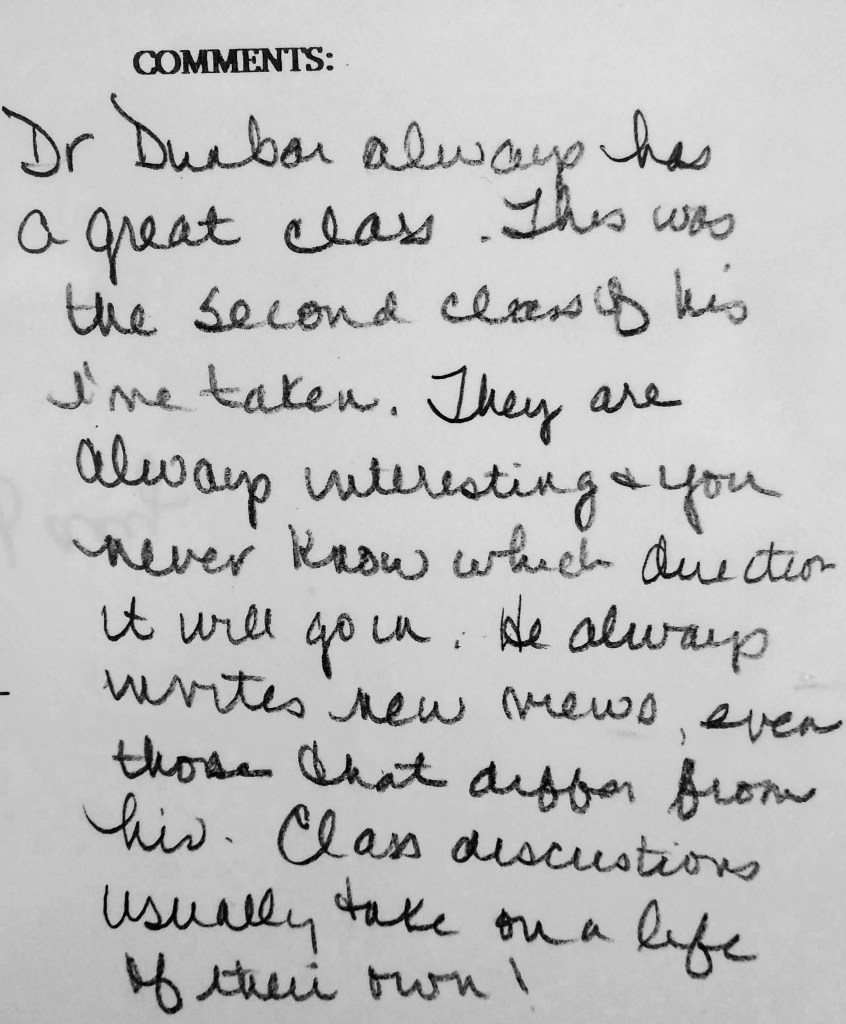 COMMENTS:
Dr Dunbar always has
a great class. This was
the second class of his
I've taken. They are
always interesting & you
never know which direction
it will go in. He always
invites new views, even
those that differ from
his. Class discustions
usually take on a life
of their own!